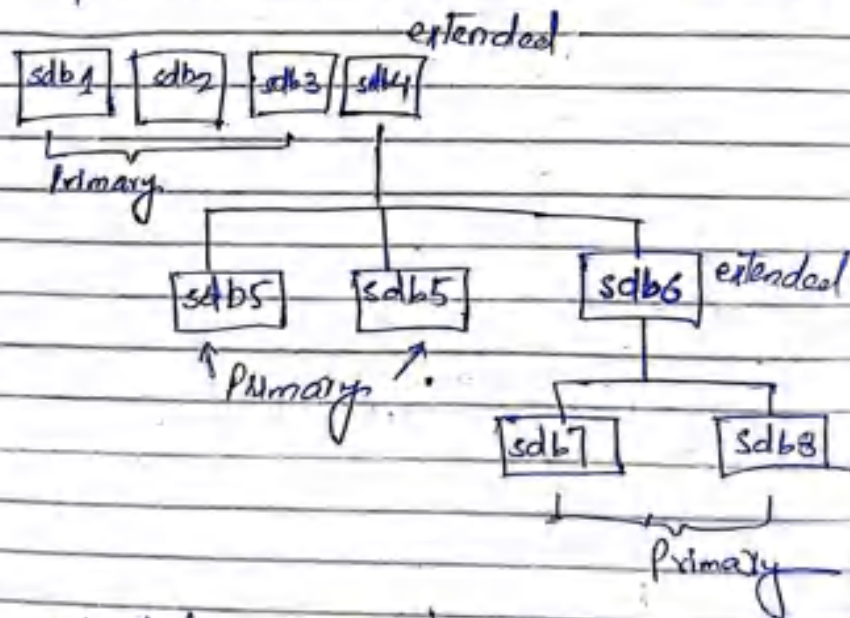 extended
sdb1 sdb2 sdb3 sdb4
Primary
sdb5 sdb5 sdb6 extended
Primary
sdb7 sdb8
Primary